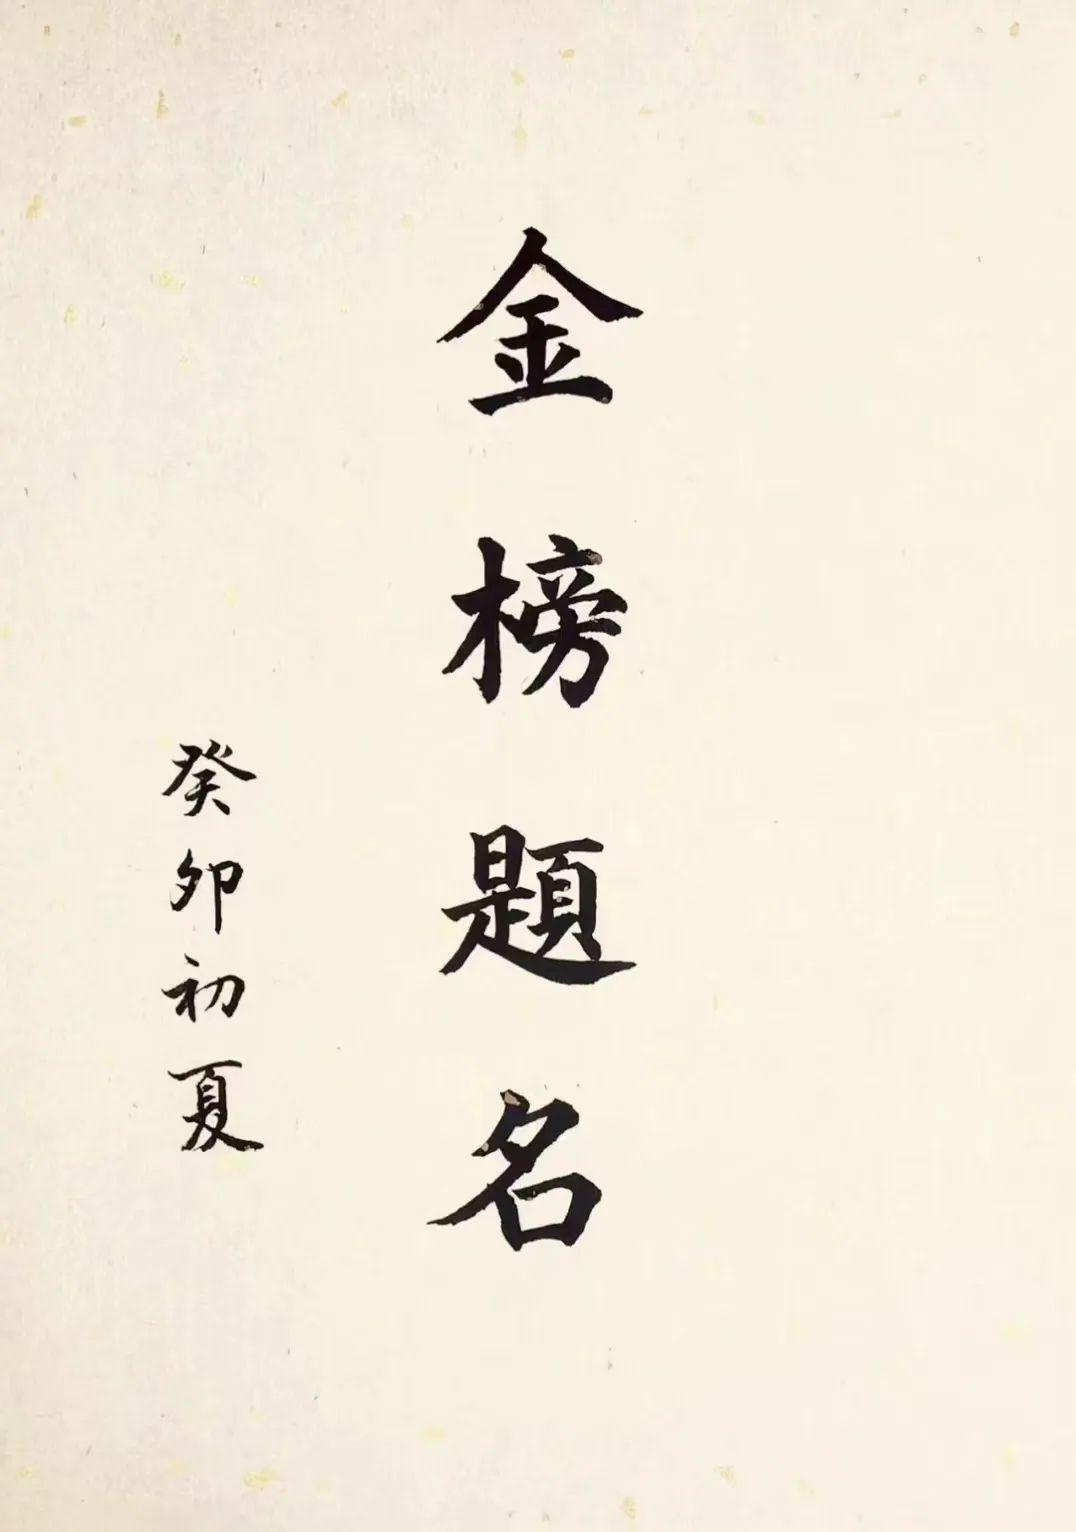 金榜題名
癸卯初夏